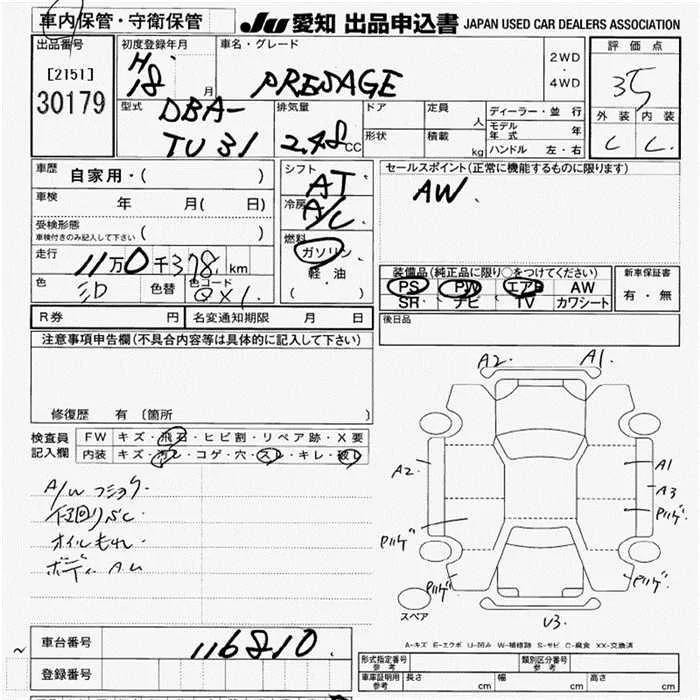 車内保管・守衛保管 JU 愛知 出品申込書 JAPAN USED CAR DEALERS ASSOCIATION
出品番号 初度登録年月 車名・グレード 2WD・4WD 評価点
[2151] H. 18 月 PRESAGE 35
30179 型式 DBA- 排気量 ドア 定員 人 ディーラー・並行 外装 内装
TU31 2.48 CC 形状 積載 kg モデル年式 年 C C.
ハンドル 左・右
車歴 自家用・( ) シフト AT セールスポイント(正常に機能するものに限ります)
車検 年 月( 日) 冷房 A/C AW
受検形態 ( )
車検付きのみ記入して下さい
燃料 ガソリン・軽油 ( )
走行 11万0千378 km 装備品(純正品に限り○をつけてください) 新車保証書
色 色替 色コード QX1. PS PW エアB AW 有・無
SR ナビ TV カワシート
R券 円 名変通知期限 月 日 後日品
注意事項申告欄(不具合内容等は具体的に記入して下さい)
修復歴 有〔箇所 〕
検査員記入欄 FW キズ・飛石・ヒビ割・リペア跡・X要
内装 キズ・汚レ・コゲ・穴・スレ・キレ・破レ
A2. A1.
A2. A1
A3
オイルもれ.
U3.
スペア
A-キズ E-エクボ U-凹み W-補修跡 S-サビ C-腐食 XX-交換済
車台番号 116810. 形式指定番号 参考 類別区分番号 参考
登録番号 車庫証明用 参考 長さ cm 幅 cm 高さ cm